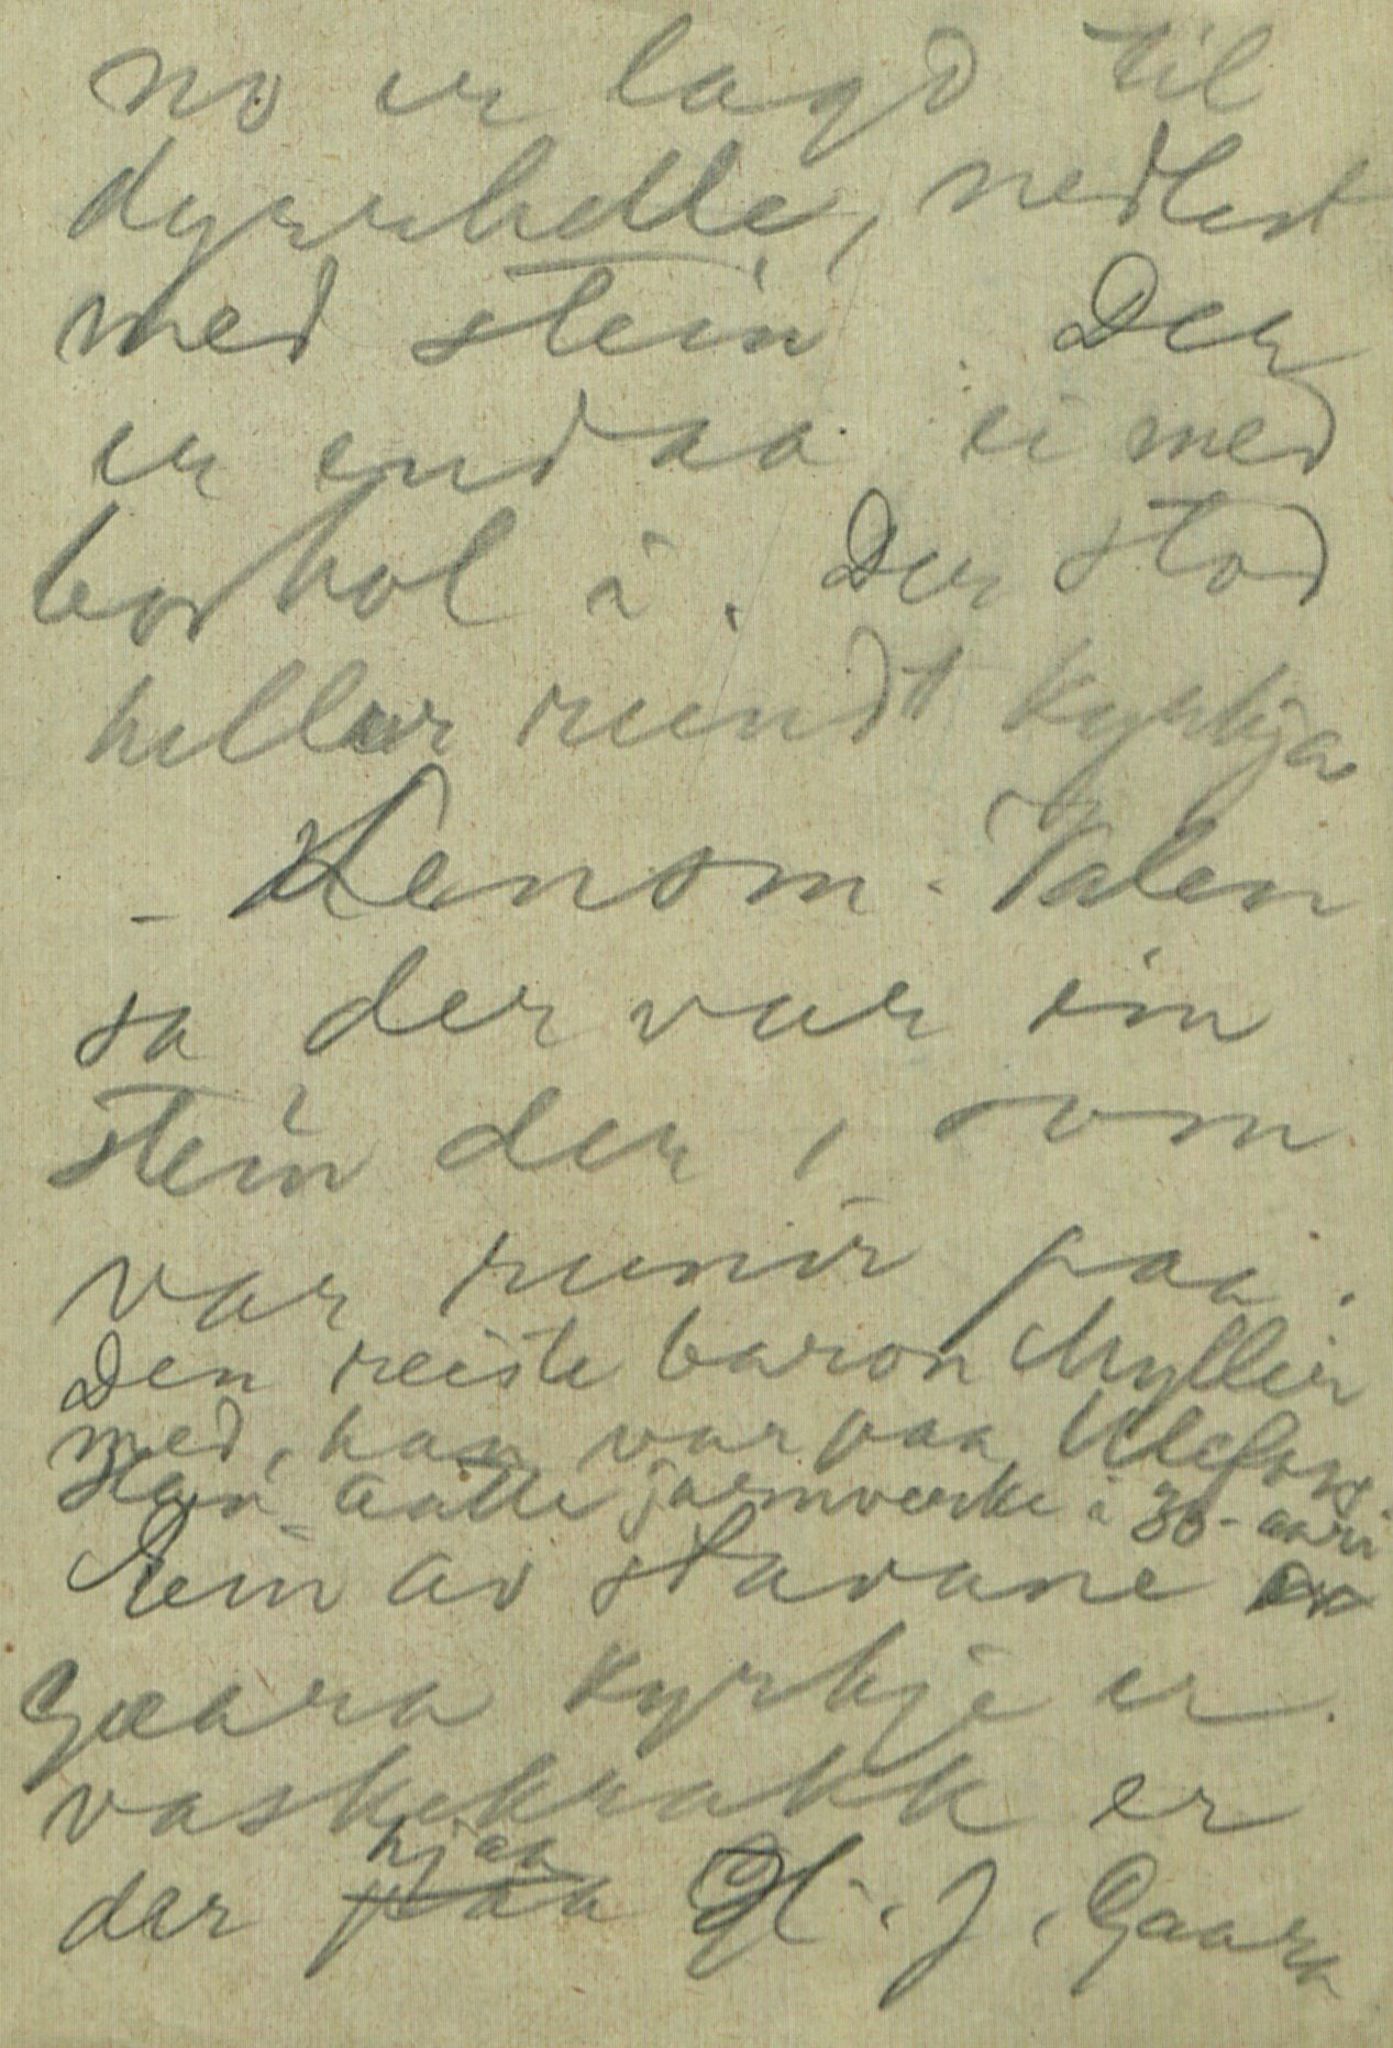 no er lagd til
dyrrhelle, nedlest
med stein. Der
er endaa ei med
borhol i. Der stod
hellur rundt kyrkja
- Lensm. Valen
sa der var ein
stein der, som
var runir paa.
Den reiste baron Myller
med, han var paa Ulefoss
Han aatte jarnverke i 30-aari
Ein av stavane
Gaara kyrkje er
vaskekrakk er
der hjaa H. J. Gaara